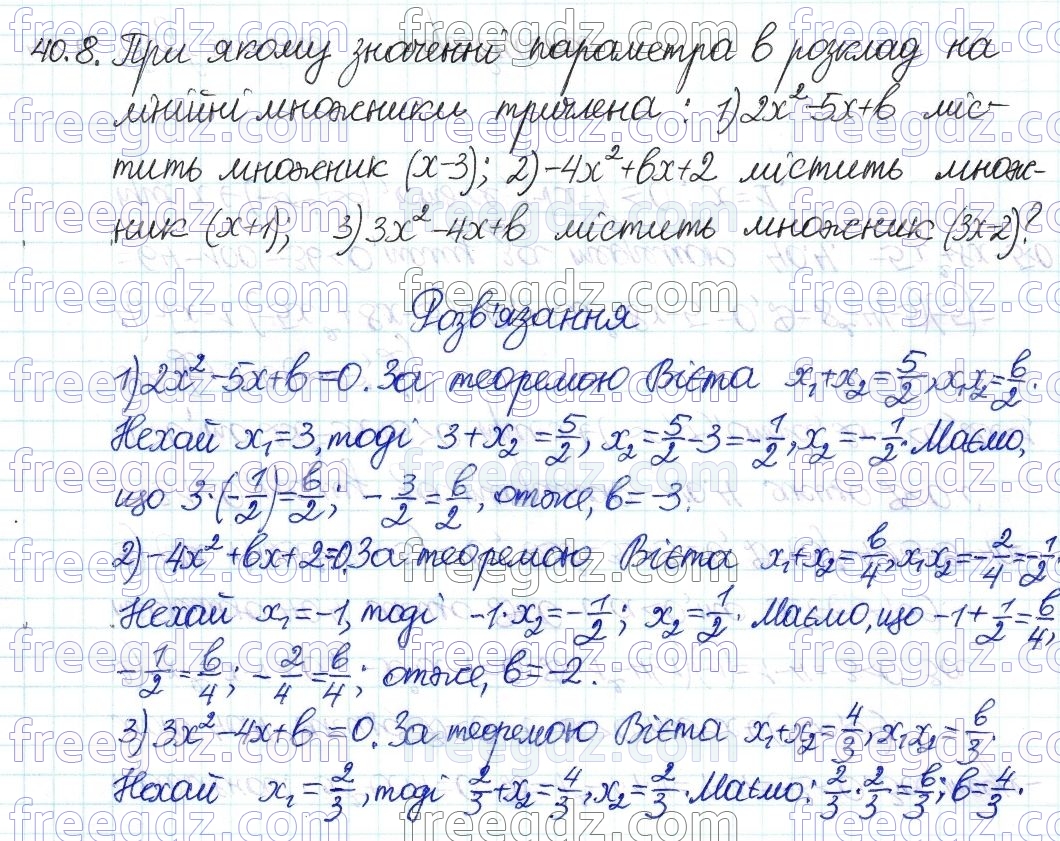 40.8. При якому значенні параметра b розклад на
лінійні множники тричлена: 1) 2x² - 5x + b міс-
тить множник (x-3); 2) -4x² + bx + 2 містить множ-
ник (x+1); 3) 3x² - 4x + b містить множник (3x-2)?
Розв'язання
1) 2x² - 5x + b = 0. За теоремою Вієта x₁ + x₂ = 5/2, x₁x₂ = b/2.
Нехай x₁ = 3, тоді 3 + x₂ = 5/2, x₂ = 5/2 - 3 = -1/2, x₂ = -1/2. Маємо,
що 3·(-1/2) = b/2; -3/2 = b/2, отже, b = -3.
2) -4x² + bx + 2 = 0. За теоремою Вієта x₁ + x₂ = b/4, x₁x₂ = -2/4 = -1/2.
Нехай x₁ = -1, тоді -1·x₂ = -1/2; x₂ = 1/2. Маємо, що -1 + 1/2 = b/4,
-1/2 = b/4; -2/4 = b/4; отже, b = -2.
3) 3x² - 4x + b = 0. За теоремою Вієта x₁ + x₂ = 4/3, x₁x₂ = b/3.
Нехай x₁ = 2/3, тоді 2/3 + x₂ = 4/3, x₂ = 2/3. Маємо: 2/3 · 2/3 = b/3; b = 4/3.
freegdz.com